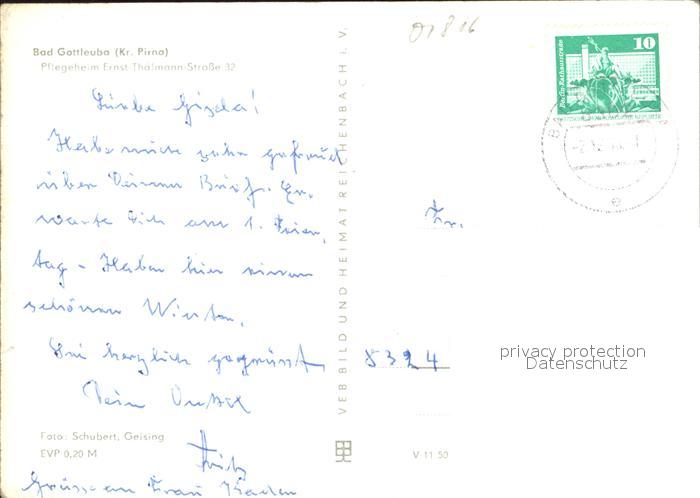 01816
Bad Gottleuba (Kr. Pirna)
Pflegeheim Ernst-Thälmann-Straße 32
Liebe Gisela!
Habe mich sehr gefreut
über Deinen Brief. Er-
warte Dich am 1. Feier-
tag - Haben hier einen
schönen Winter.
Sei herzlich gegrüsst
Dein Onkel
Fritz
Grüsse an Frau Kaden
Foto: Schubert, Geising
EVP 0,20 M
VEB BILD UND HEIMAT REICHENBACH I. V.
V 11 50
10
Berlin-Rathausstraße
Fr.
8324
privacy protection
Datenschutz